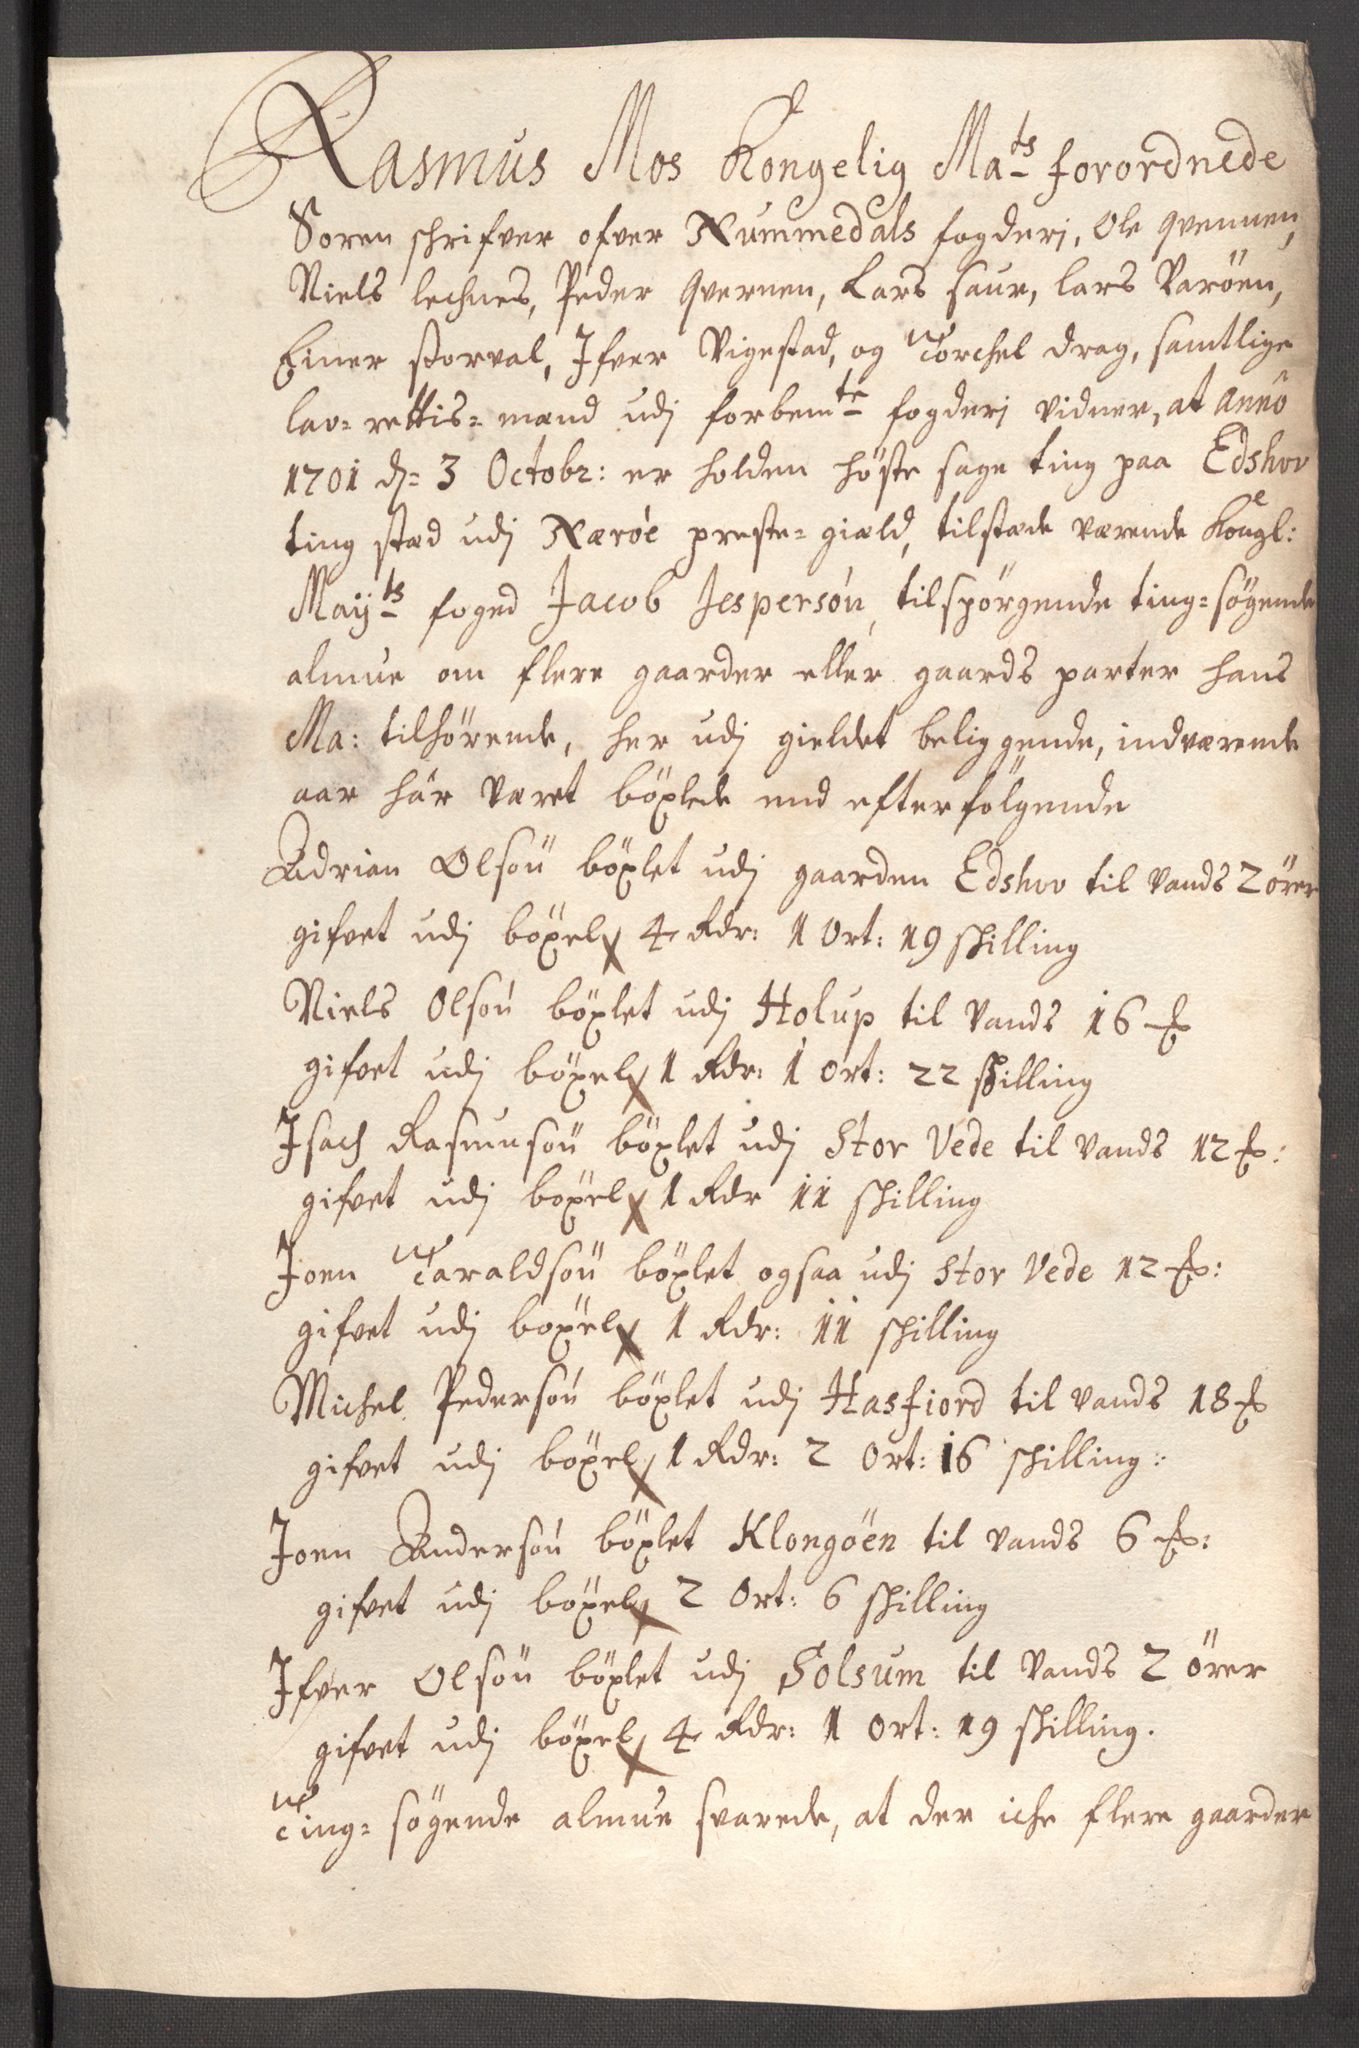 Rasmus Mos Kongelig Ma^ts forordnede
Soren schrifver ofver Nummedals fogderj, Ole qvennen,
Niels lechnes, Peder qvernen, Lars saur, lars Varöen,
Einer storval, Ifver Vigestad, og Torchel drag, samtlige
lav=rettis=mænd udj forbem^te fogderj vidner, at Anno
1701 d= 3 Octobr: er holden höste sage ting paa Edshov
ting stæd udj Næröe preste=giæld, tilstæde værende Kongl:
Maij^ts foged Jacob Jespersön, tilspörgende ting=sögende
almue om flere gaarder eller gaards parter hans
Ma: tilhörende, her udj gieldet beliggende, indværende
aar hár været böxlede end efterfölgende
Adrian Olsön böxlet udj gaarden Edshov til vands 2 örer
gifvet udj böxel 4 Rdr: 1 Ort: 19 schilling
Niels Olsön böxlet udj Holup til vands 16 
gifvet udj böxel 1 Rdr: 1 Ort: 22 schilling
Isach Rasmusön böxlet udj Stor Vede til vands 12
gifvet udj böxel 1 Rdr 11 schilling
Joen Taraldsön böxlet ogsaa udj Stor Vede 12
gifvet udj böxel 1 Rdr: 11 schilling
Michel Pedersön böxlet udj Hasfiord til vands 18
gifvet udj böxel 1 Rdr: 2 Ort: 16 schilling:
Joen Andersön böxlet Klongöen til vands 6
gifvet udj böxel 2 Ort: 6 schilling
Ifver Olsön böxlet udj Solsum til vands 2 örer
gifvet udj böxel 4 Rdr: 1 Ort: 19 schilling.
Ting=sögende almue svarede, at der iche flere gaarder